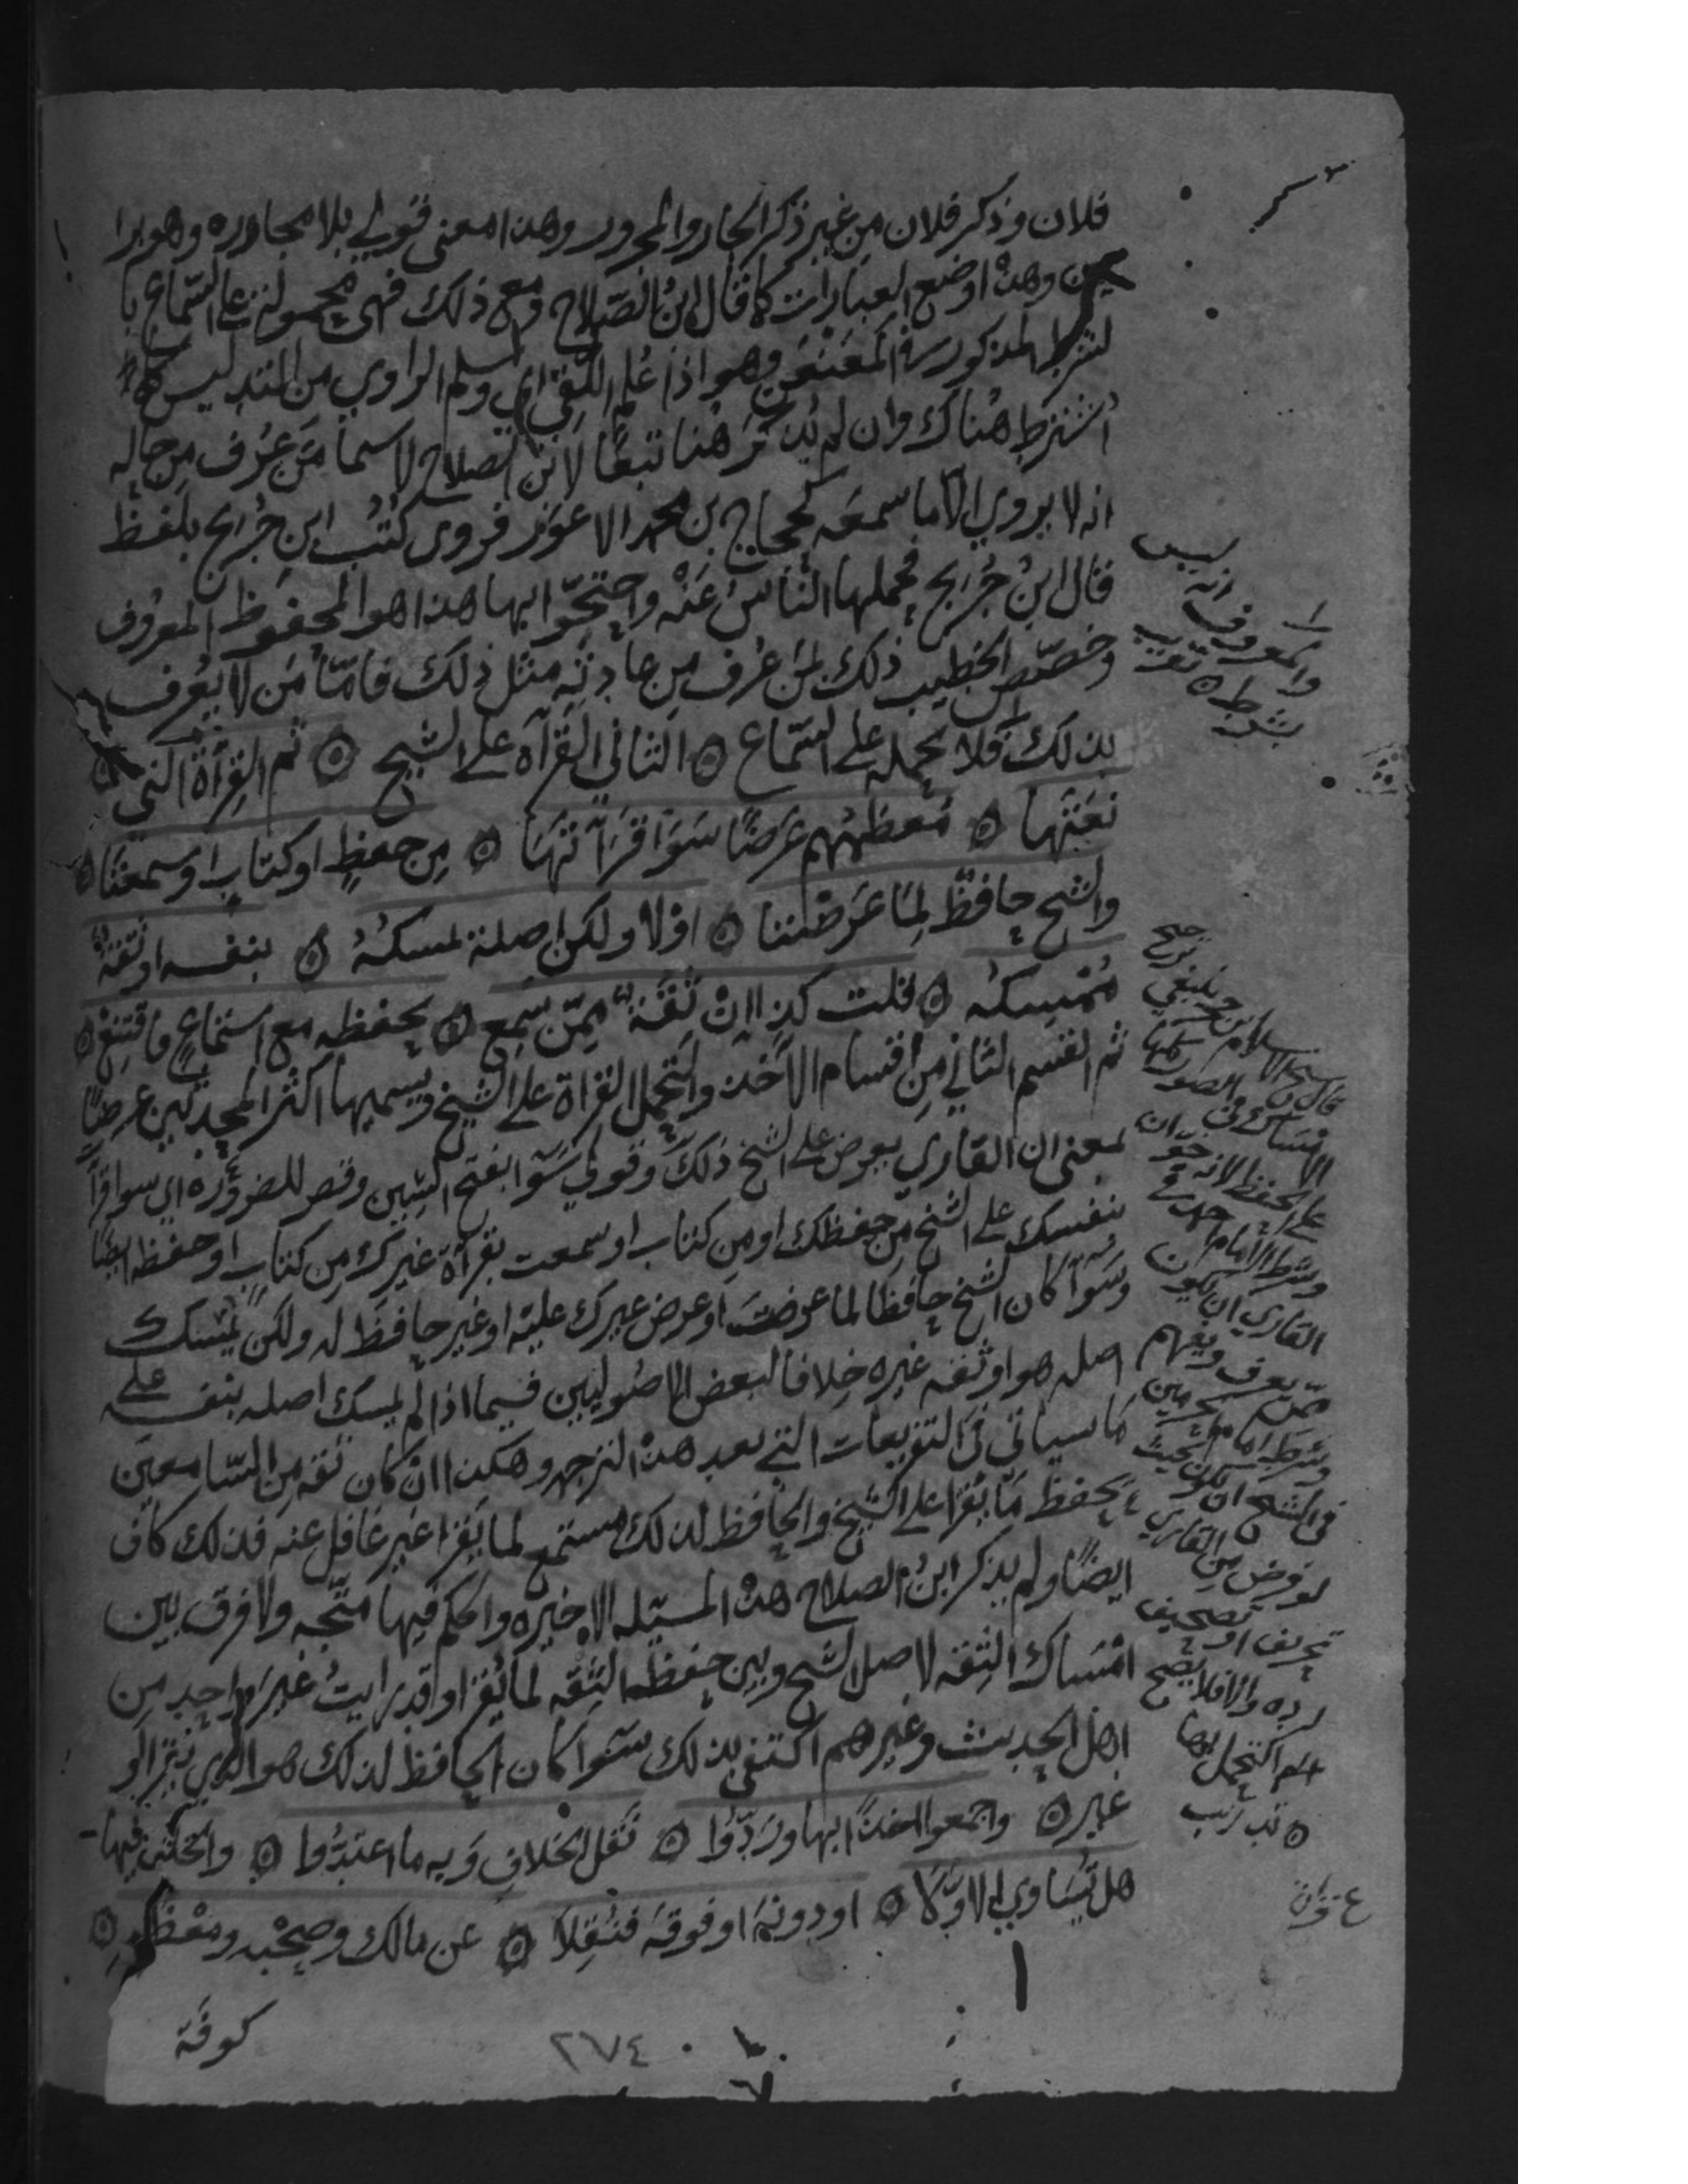 فلان وذكر فلان من غير ذكر الجار والمجرور وهذا معنى قولي بلا مجاوره وهو برا
وهذه اوضع العبارات كما قال ابن الصلاح ومع ذلك فهي محمولة على السماع با
لشرط المذكور في المعنعن وهو اذا علم اللقي اي وسلم الراوي من التدليس كما
اشترط هناك وان لم يذكر هنا تبعا لابن الصلاح لا سيما من عرف من حاله
انه لا يروي الا ما سمعه كحجاج بن محمد الاعور فروى كتب ابن جريج بلفظ
قال ابن جريج فحملها الناس عنه واحتجوا بها هذا هو المحفوظ المعروف
وخصص الخطيب ذلك بمن عرف من عادته مثل ذلك فاما من لا يعرف
بذلك فلا يحمله على السماع ۞ الثاني القرآة على الشيخ ۞ ثم القرآة التي
نعتها ۞ معظمهم عرضا سوا قرأتها ۞ من حفظ او كتاب او سمعتا ۞
والشيخ حافظ لما عرضتا ۞ اولا ولكن اصله يمسكه ۞ بنفسه او ثقة
ممسكه ۞ قلت كذا ان ثقة ممن سمع ۞ يحفظه مع استماع فاقتنع ۞
ثم القسم الثاني من اقسام الاخذ والتحمل القراة على الشيخ ويسميها اكثر المحدثين عرضا
بمعنى ان القاري يعرض على الشيخ ذلك وقولي سوا بفتح السين وقصر للضرورة اي سوا قرأ
بنفسك على الشيخ من حفظك او من كتاب او سمعت بقرآة غيرك من كتاب او حفظه ايضا
وسوآ كان الشيخ حافظا لما عرضت او عرض غيرك عليه او غير حافظ له ولكن يمسك
اصله هو او ثقة غيره خلافا لبعض الاصوليين فيما اذا لم يمسك اصله بنفسه على
ما سياتي في التفريعات التي بعد هذه الترجمه وهكذا ان كان ثقه من السامعين
يحفظ ما يقرأ على الشيخ والحافظ لذلك مستمع لما يقرأ غير غافل عنه فذلك كاف
ايضا ولم يذكر ابن الصلاح هذه المسئله الاخيره والحكم فيها متجه ولا فرق بين
امساك الثقه لاصل الشيخ وبين حفظ الثقه لما يقرأ وقد رايت غير واحد من
اهل الحديث وغيرهم اكتفى بذلك سوا كان الحافظ لذلك هو الذي يقرأ او
غيره ۞ واجمعوا اخذا بها وردوا ۞ نقل الخلاف وبه ما اعتدوا ۞ والخلف فيها
هل تساوي الاولا ۞ او دونه او فوقه فنقلا ۞ عن مالك وصحبه ومعظم ۞
كوفة
٢٧٤
ليس
والمعروف انه
بشرط ۞ تقريب
قال شيخ الاسلام
الامساك في الصور كلها
على الحفظ لانه خوان
وشرط الامام احمد في
القاري ان يكون
ممن يعرف ويفهم
وشرط امام الحرمين
في الشيخ ان يكون بحيث
لو فرض من القاري
تحريف او تصحيف
لرده والا فلا يصح
التحمل بها
۞ تدريب